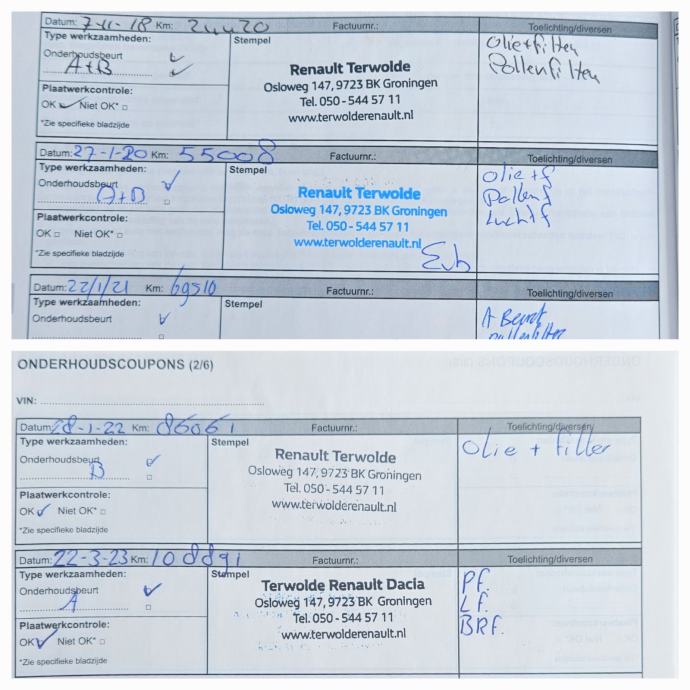 Datum: 7-11-18 Km: 24420 Factuurnr.: Toelichting/diversen
Type werkzaamheden: Stempel Olie+filter
Onderhoudsbeurt Pollenfilter
A+B
Renault Terwolde
Plaatwerkcontrole: Osloweg 147, 9723 BK Groningen
OK Niet OK* Tel. 050 - 544 57 11
*Zie specifieke bladzijde www.terwolderenault.nl
Datum: 27-1-20 Km: 55008 Factuurnr.: Toelichting/diversen
Type werkzaamheden: Stempel Olie + f
Onderhoudsbeurt Renault Terwolde Pollenf
A+B Osloweg 147, 9723 BK Groningen Luchtf
Plaatwerkcontrole: Tel. 050 - 544 57 11
OK Niet OK* www.terwolderenault.nl
*Zie specifieke bladzijde
Datum: 22/1/21 Km: 69510 Factuurnr.: Toelichting/diversen
Type werkzaamheden: Stempel A Beurt
Onderhoudsbeurt pollenfilter
ONDERHOUDSCOUPONS (2/6)
VIN:
Datum: 28-1-22 Km: 86061 Factuurnr.: Toelichting/diversen
Type werkzaamheden: Stempel Olie + filter
Onderhoudsbeurt Renault Terwolde
B Osloweg 147, 9723 BK Groningen
Plaatwerkcontrole: Tel. 050 - 544 57 11
OK Niet OK* www.terwolderenault.nl
*Zie specifieke bladzijde
Datum: 22-3-23 Km: Factuurnr.: Toelichting/diversen
Type werkzaamheden: Stempel PF.
Onderhoudsbeurt Terwolde Renault Dacia LF.
A Osloweg 147, 9723 BK Groningen BRF.
Plaatwerkcontrole: Tel. 050 - 544 57 11
OK Niet OK* www.terwolderenault.nl
*Zie specifieke bladzijde